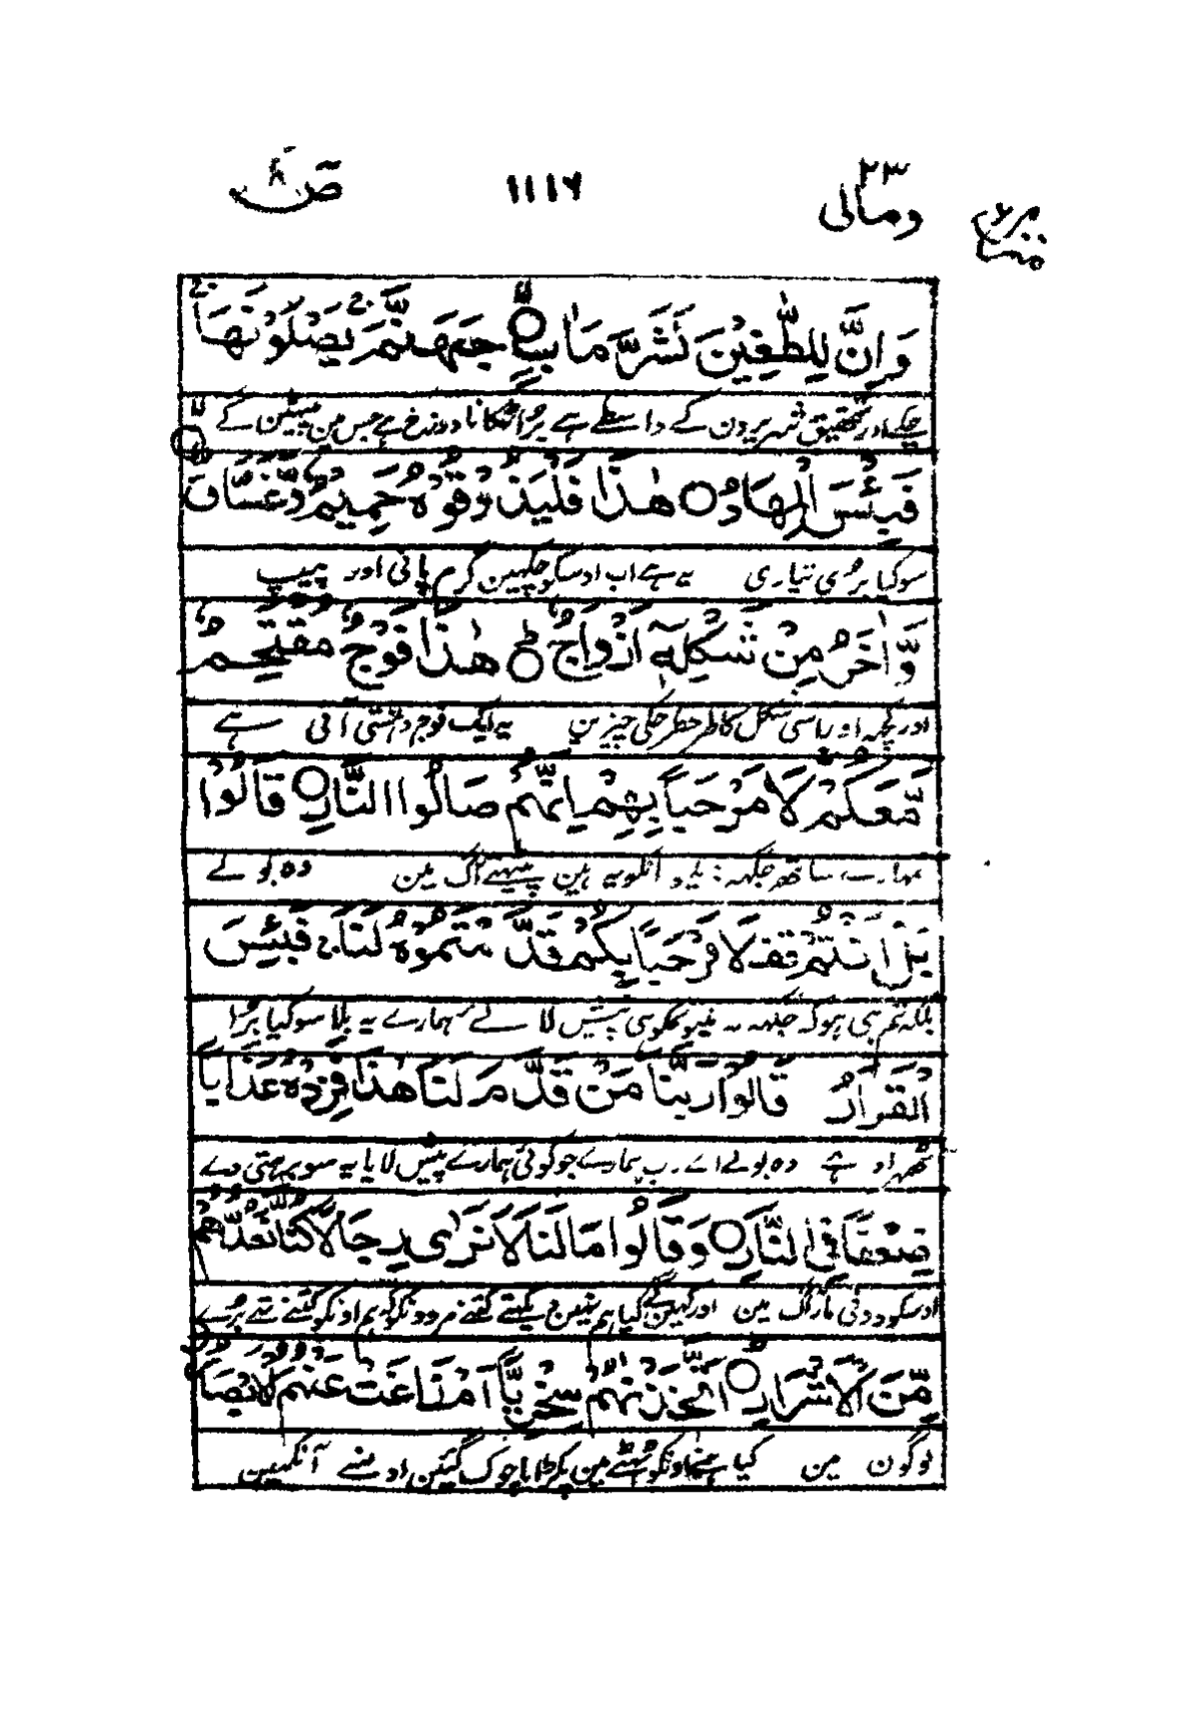 ٢٣ ومالى ١١١٦ ص
منزل ٦
وَاِنَّ لِلطّٰغِيْنَ لَشَرَّ مَاٰبٍ ○ جَهَنَّمَ ۚ يَصْلَوْنَهَا ۚ
اور تحقیق شریرون کے واسطے ہے برا ٹھکانا دوزخ ہے جس مین پیٹھین کے
فَبِئْسَ الْمِهَادُ ○ هٰذَا فَلْيَذُوْقُوْهُ حَمِيْمٌ وَّغَسَّاقٌ
سو کیا بری تیاری یہ ہے اب اوسکو چکھین گرم پانی اور پیپ
وَّاٰخَرُ مِنْ شَكْلِهٖٓ اَزْوَاجٌ ○ هٰذَا فَوْجٌ مُّقْتَحِمٌ
اور کچھ اوراسی شکل کا طرحطرحکی چیزین یہ ایک فوج دہنستی آتی ہے
مَّعَكُمْ لَا مَرْحَبًا بِهِمْ اِنَّهُمْ صَالُوا النَّارِ ○ قَالُوْا
تمہارے ساتھ جگہہ نہ ملیو انکو یہ ہین پیٹھنے آگ مین وہ بولے
بَلْ اَنْتُمْ قف لَا مَرْحَبًا بِكُمْ قَدَّمْتُمُوْهُ لَنَا ۚ فَبِئْسَ
بلکہ تم ہی ہو کہ جگہہ نہ ملیو تمکو ہی پیش لائے ہمارے یہ بلا سو کیا برا
الْقَرَارُ قَالُوْا رَبَّنَا مَنْ قَدَّمَ لَنَا هٰذَا فَزِدْهُ عَذَابًا
ٹھہراو ہے وہ بولے اے رب ہمارے جو کوئی ہمارے پیش لایا یہ سو بڑھتی دے
ضِعْفًا فِى النَّارِ ○ وَقَالُوْا مَا لَنَا لَا نَرٰى رِجَالًا كُنَّا نَعُدُّهُمْ
اوسکو دونی مار آگ مین اور کہینگے کیا ہم نہین دیکھتے کتنے مردونکو کہ ہم اونکو گنتے تھے برے
مِّنَ الْاَشْرَارِ ○ اَتَّخَذْنٰهُمْ سِخْرِيًّا اَمْ زَاغَتْ عَنْهُمُ الْاَبْصَارُ
لوگون مین کیا ہمنے اونکو ٹھٹھے مین پکڑا یا چوک گئین اونسے آنکھین